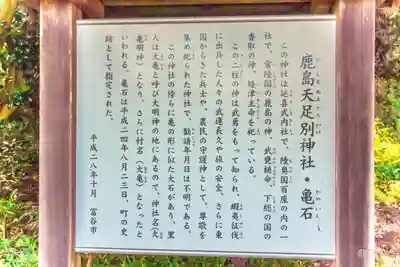 鹿島天足別神社・亀石
この神社は延喜式内社で、陸奥国百座の内の一
社で、常陸国の鹿島の神、武甕槌命、下総の国の
香取の神、経津主命を祀っている。
この二柱の神は武勇をもって知られ、蝦夷征伐
に出兵した人々の武運長久や旅の安全、さらに東
国からきた兵士や、農民の守護神として、尊敬を
集め祀られた神社で、勧請年月日は不明である。
この神社の傍らに亀の形に似た大石があり、里
人は大亀と呼び大明神の地にあるので、神社名(大
亀明神)となり、さらに村名(大亀)となったと
いわれる。亀石は平成二四年八月二三日、町の史
跡として指定された。
平成二八年十月 富谷市